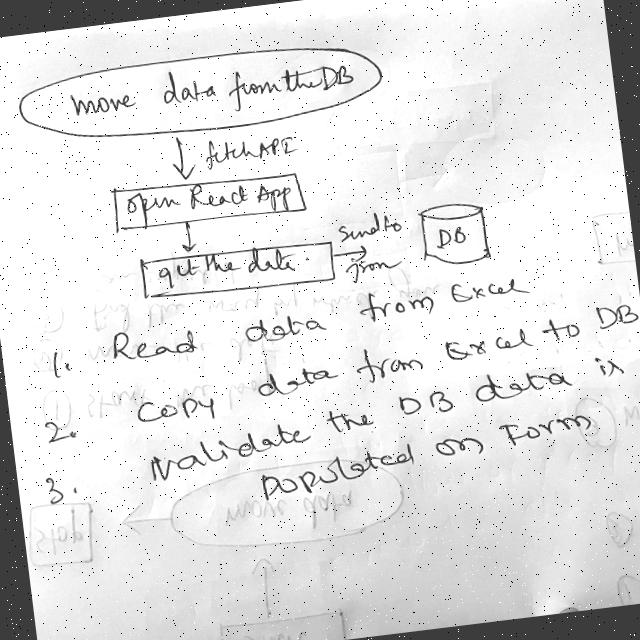 move data from the DB
fetch API
open React App
get the date.
send to
json
DB
1. Read data from Excel
2. Copy data from Excel to DB
3. Validate the DB data is
populated on Form
move data
Stop